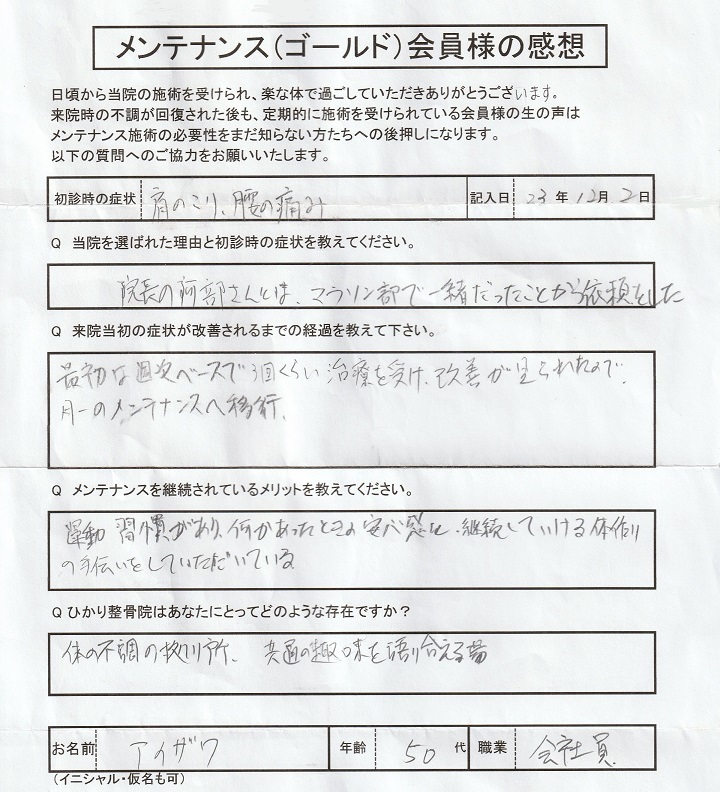 メンテナンス(ゴールド)会員様の感想
日頃から当院の施術を受けられ、楽な体で過ごしていただきありがとうございます。
来院時の不調が回復された後も、定期的に施術を受けられている会員様の生の声は
メンテナンス施術の必要性をまだ知らない方たちへの後押しになります。
以下の質問へのご協力をお願いいたします。
初診時の症状 肩のこり、腰の痛み 記入日 23年12月2日
Q 当院を選ばれた理由と初診時の症状を教えてください。
院長の阿部さんとは、マラソン部で一緒だったことから依頼をした
Q 来院当初の症状が改善されるまでの経過を教えて下さい。
最初は週次ベースで3回くらい治療を受け、改善が見られたので、
月一のメンテナンスへ移行、
Q メンテナンスを継続されているメリットを教えてください。
運動習慣があり、何かあったときの安心感と、継続していける体作り
の手伝いをしていただいている
Q ひかり整骨院はあなたにとってどのような存在ですか？
体の不調の拠り所、共通の趣味を語り合える場
お名前 アイザワ 年齢 50代 職業 会社員
(イニシャル・仮名も可)